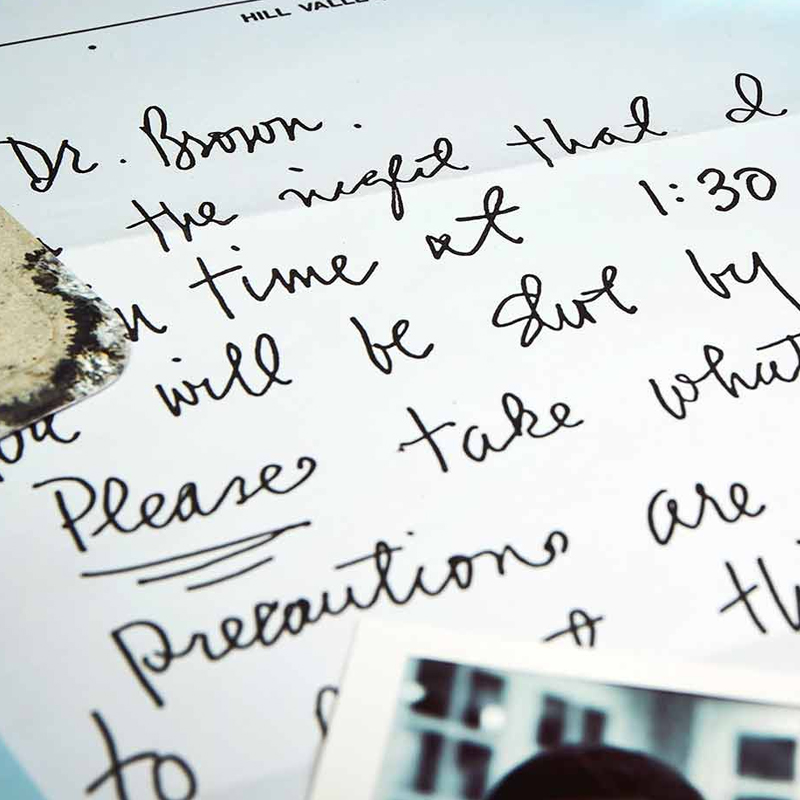 HILL VALLE
Dr. Brown.
the night that I
n time at 1:30
will be shot by
you
Please take what
precautions are
th
to